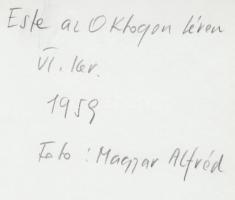 Este az Oktogon téren
VI. ker.
1959
Foto: Magyar Alfréd